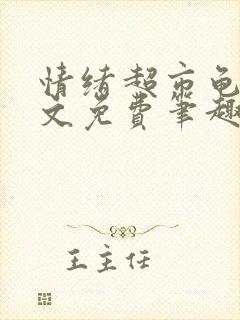 情绪超市龟
文免费笔趣
王主任